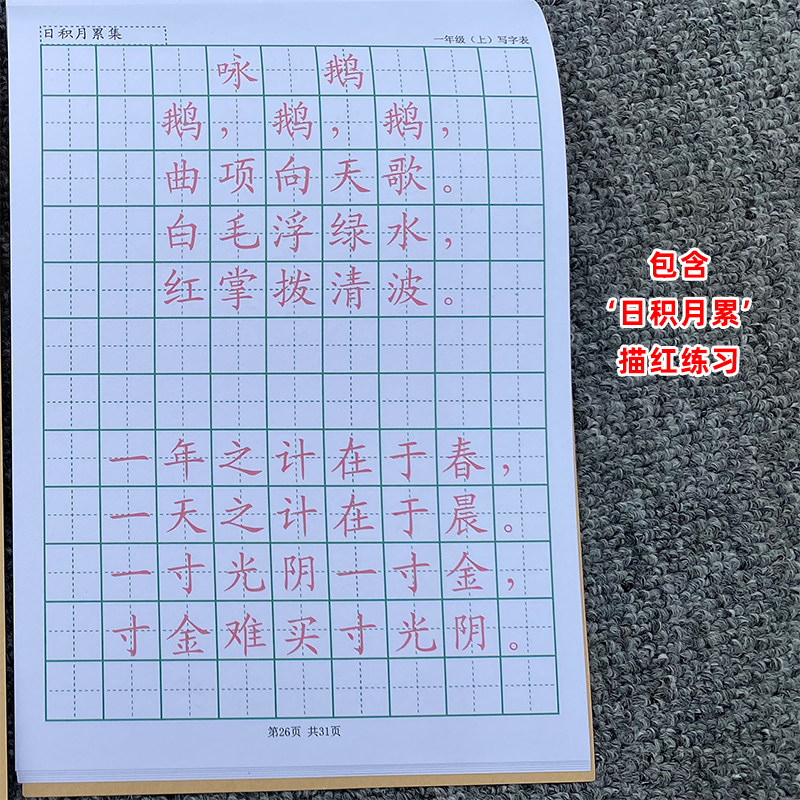 日积月累集
一年级（上）写字表
咏 鹅
鹅，鹅，鹅，
曲项向天歌。
白毛浮绿水，
红掌拨清波。
一年之计在于春，
一天之计在于晨。
一寸光阴一寸金，
寸金难买寸光阴。
第26页 共31页
包含
‘日积月累’
描红练习